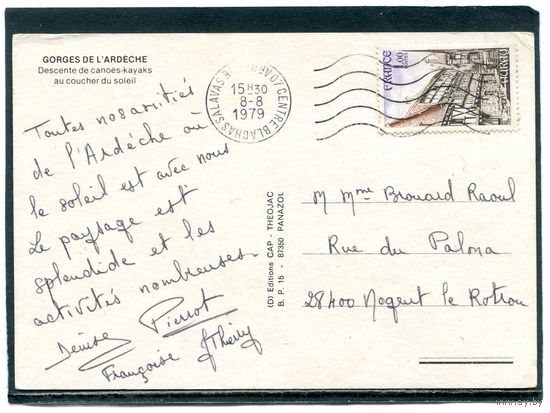 GORGES DE L'ARDÈCHE
Descente de canoës-kayaks
au coucher du soleil
Toutes nos amitiés
de l'Ardèche où
le soleil est avec nous
Le paysage est
splendide et les
activités nombreuses.
Denise Pierrot
Françoise Thierry
(O) Editions CAP - THEOJAC
B. P. 15 - 87350 PANAZOL
CENTRE BLACHAS SALAVAS
15H30
8-8
1979
FRANCE
1,00
M Mme Brouard Raoul
Rue du Paloma
28400 Nogent le Rotrou